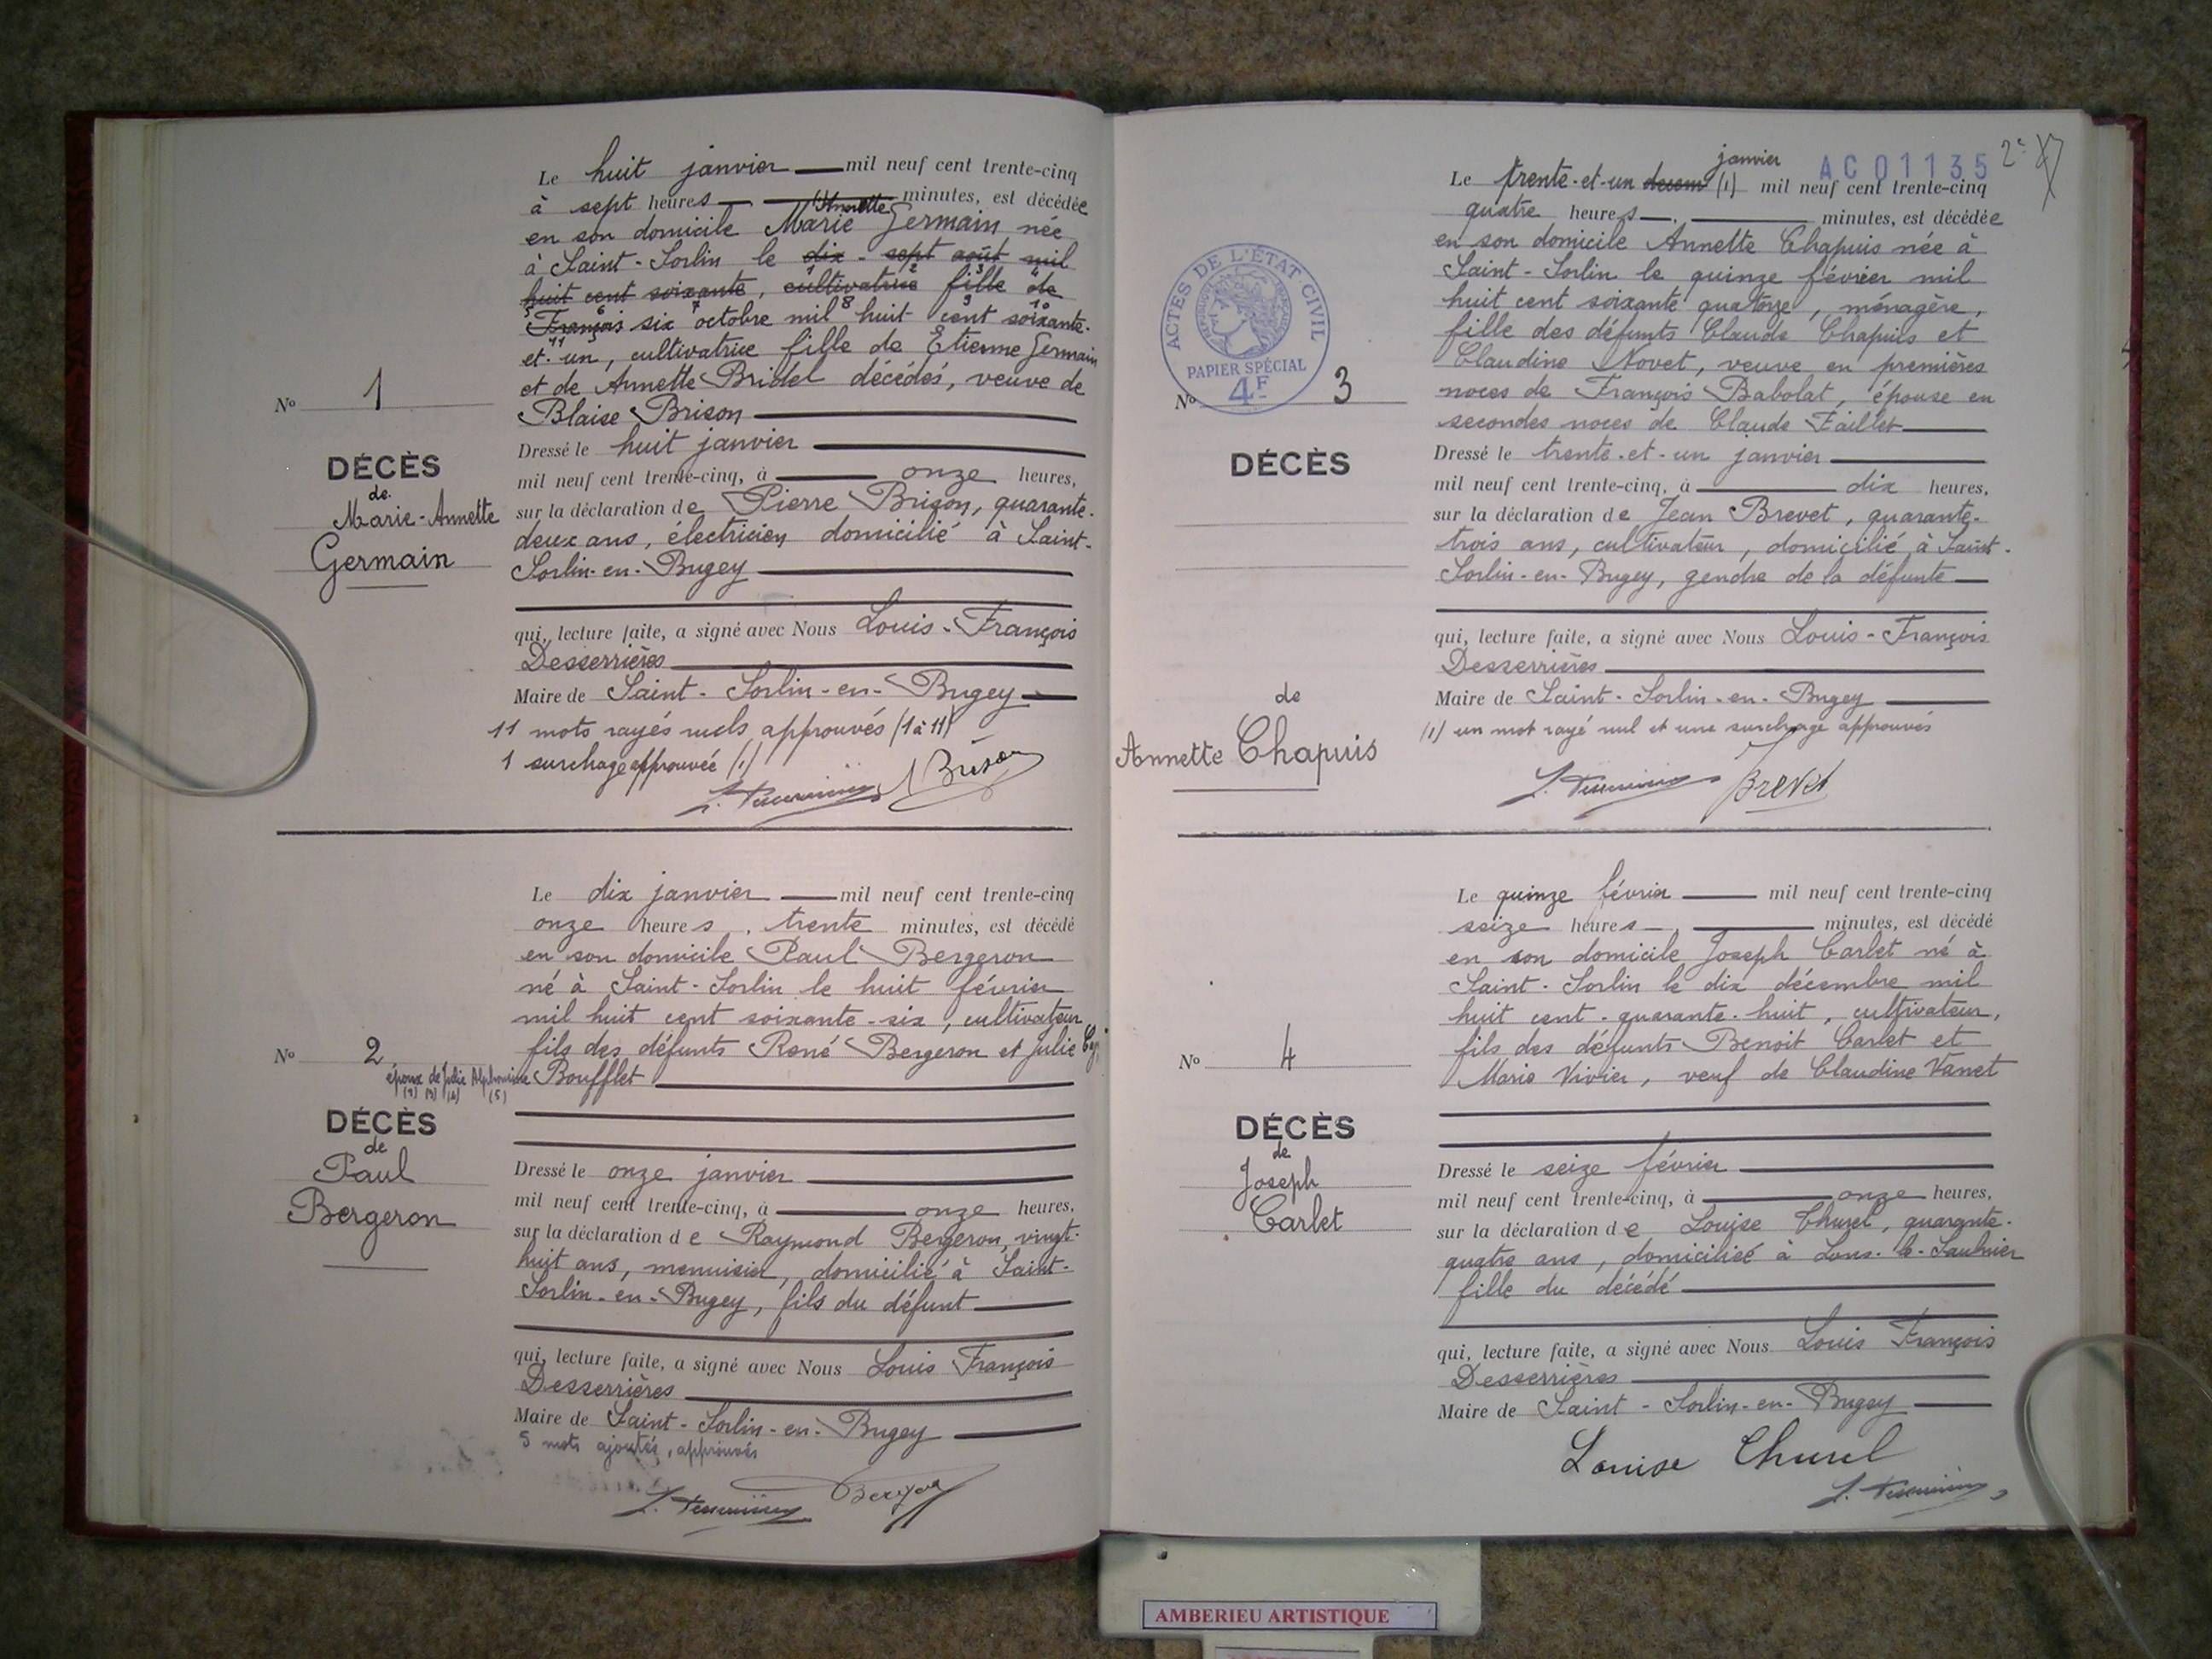 Le huit janvier mil neuf cent trente-cinq
à sept heures minutes, est décédée
Annette (1)
en son domicile Marie Germain née
à Saint-Sorlin le dix-sept août mil
huit cent soixante, cultivatrice fille de
François six octobre mil huit cent soixante-
et-un, cultivatrice fille de Etienne Germain
et de Annette Bridel décédés, veuve de
Blaise Brison
No 1
DÉCÈS
de
Marie-Annette
Germain
Dressé le huit janvier
mil neuf cent trente-cinq, à onze heures,
sur la déclaration de Pierre Brison, quarante-
deux ans, électricien domicilié à Saint-
Sorlin-en-Bugey
qui, lecture faite, a signé avec Nous Louis-François
Desserrières
Maire de Saint-Sorlin-en-Bugey
11 mots rayés nuls approuvés (1 à 11)
1 surchage approuvée (1)
Brison
Le dix janvier mil neuf cent trente-cinq
onze heures, trente minutes, est décédé
en son domicile Paul Bergeron
né à Saint-Sorlin le huit février
mil huit cent soixante-six, cultivateur
fils des défunts René Bergeron et Julie
No 2
époux de Julie Alphonsine Boufflet
(2) (3) (4) (5)
DÉCÈS
de
Paul
Bergeron
Dressé le onze janvier
mil neuf cent trente-cinq, à onze heures,
sur la déclaration de Raymond Bergeron, vingt-
huit ans, menuisier, domicilié à Saint-
Sorlin-en-Bugey, fils du défunt
qui, lecture faite, a signé avec Nous Louis François
Desserrières
Maire de Saint-Sorlin-en-Bugey
5 mots ajoutés, approuvés
AC 01135
2e
janvier
Le trente-et-un decem (1) mil neuf cent trente-cinq
quatre heures minutes, est décédée
en son domicile Annette Chapuis née à
Saint-Sorlin le quinze février mil
huit cent soixante quatorze, ménagère,
fille des défunts Claude Chapuis et
Claudine Novet, veuve en premières
noces de François Babolat, épouse en
secondes noces de Claude Faillet
ACTES DE L'ÉTAT CIVIL
RÉPUBLIQUE FRANÇAISE
PAPIER SPÉCIAL
4F
No 3
DÉCÈS
de
Annette Chapuis
Dressé le trente-et-un janvier
mil neuf cent trente-cinq, à dix heures,
sur la déclaration de Jean Brevet, quarante-
trois ans, cultivateur, domicilié à Saint-
Sorlin-en-Bugey, gendre de la défunte
qui, lecture faite, a signé avec Nous Louis-François
Desserrières
Maire de Saint-Sorlin-en-Bugey
(1) un mot rayé nul et une surcharge approuvés
Brevet
Le quinze février mil neuf cent trente-cinq
seize heures minutes, est décédé
en son domicile Joseph Carlet né à
Saint-Sorlin le dix décembre mil
huit cent-quarante-huit, cultivateur,
fils des défunts Benoit Carlet et
Marie Vivier, veuf de Claudine Vanet
No 4
DÉCÈS
de
Joseph
Carlet
Dressé le seize février
mil neuf cent trente-cinq, à onze heures,
sur la déclaration de Louise Churel, quarante-
quatre ans, domiciliée à Lons-le-Saulnier
fille du décédé
qui, lecture faite, a signé avec Nous Louis François
Desserrières
Maire de Saint-Sorlin-en-Bugey
Louise Churel
AMBERIEU ARTISTIQUE